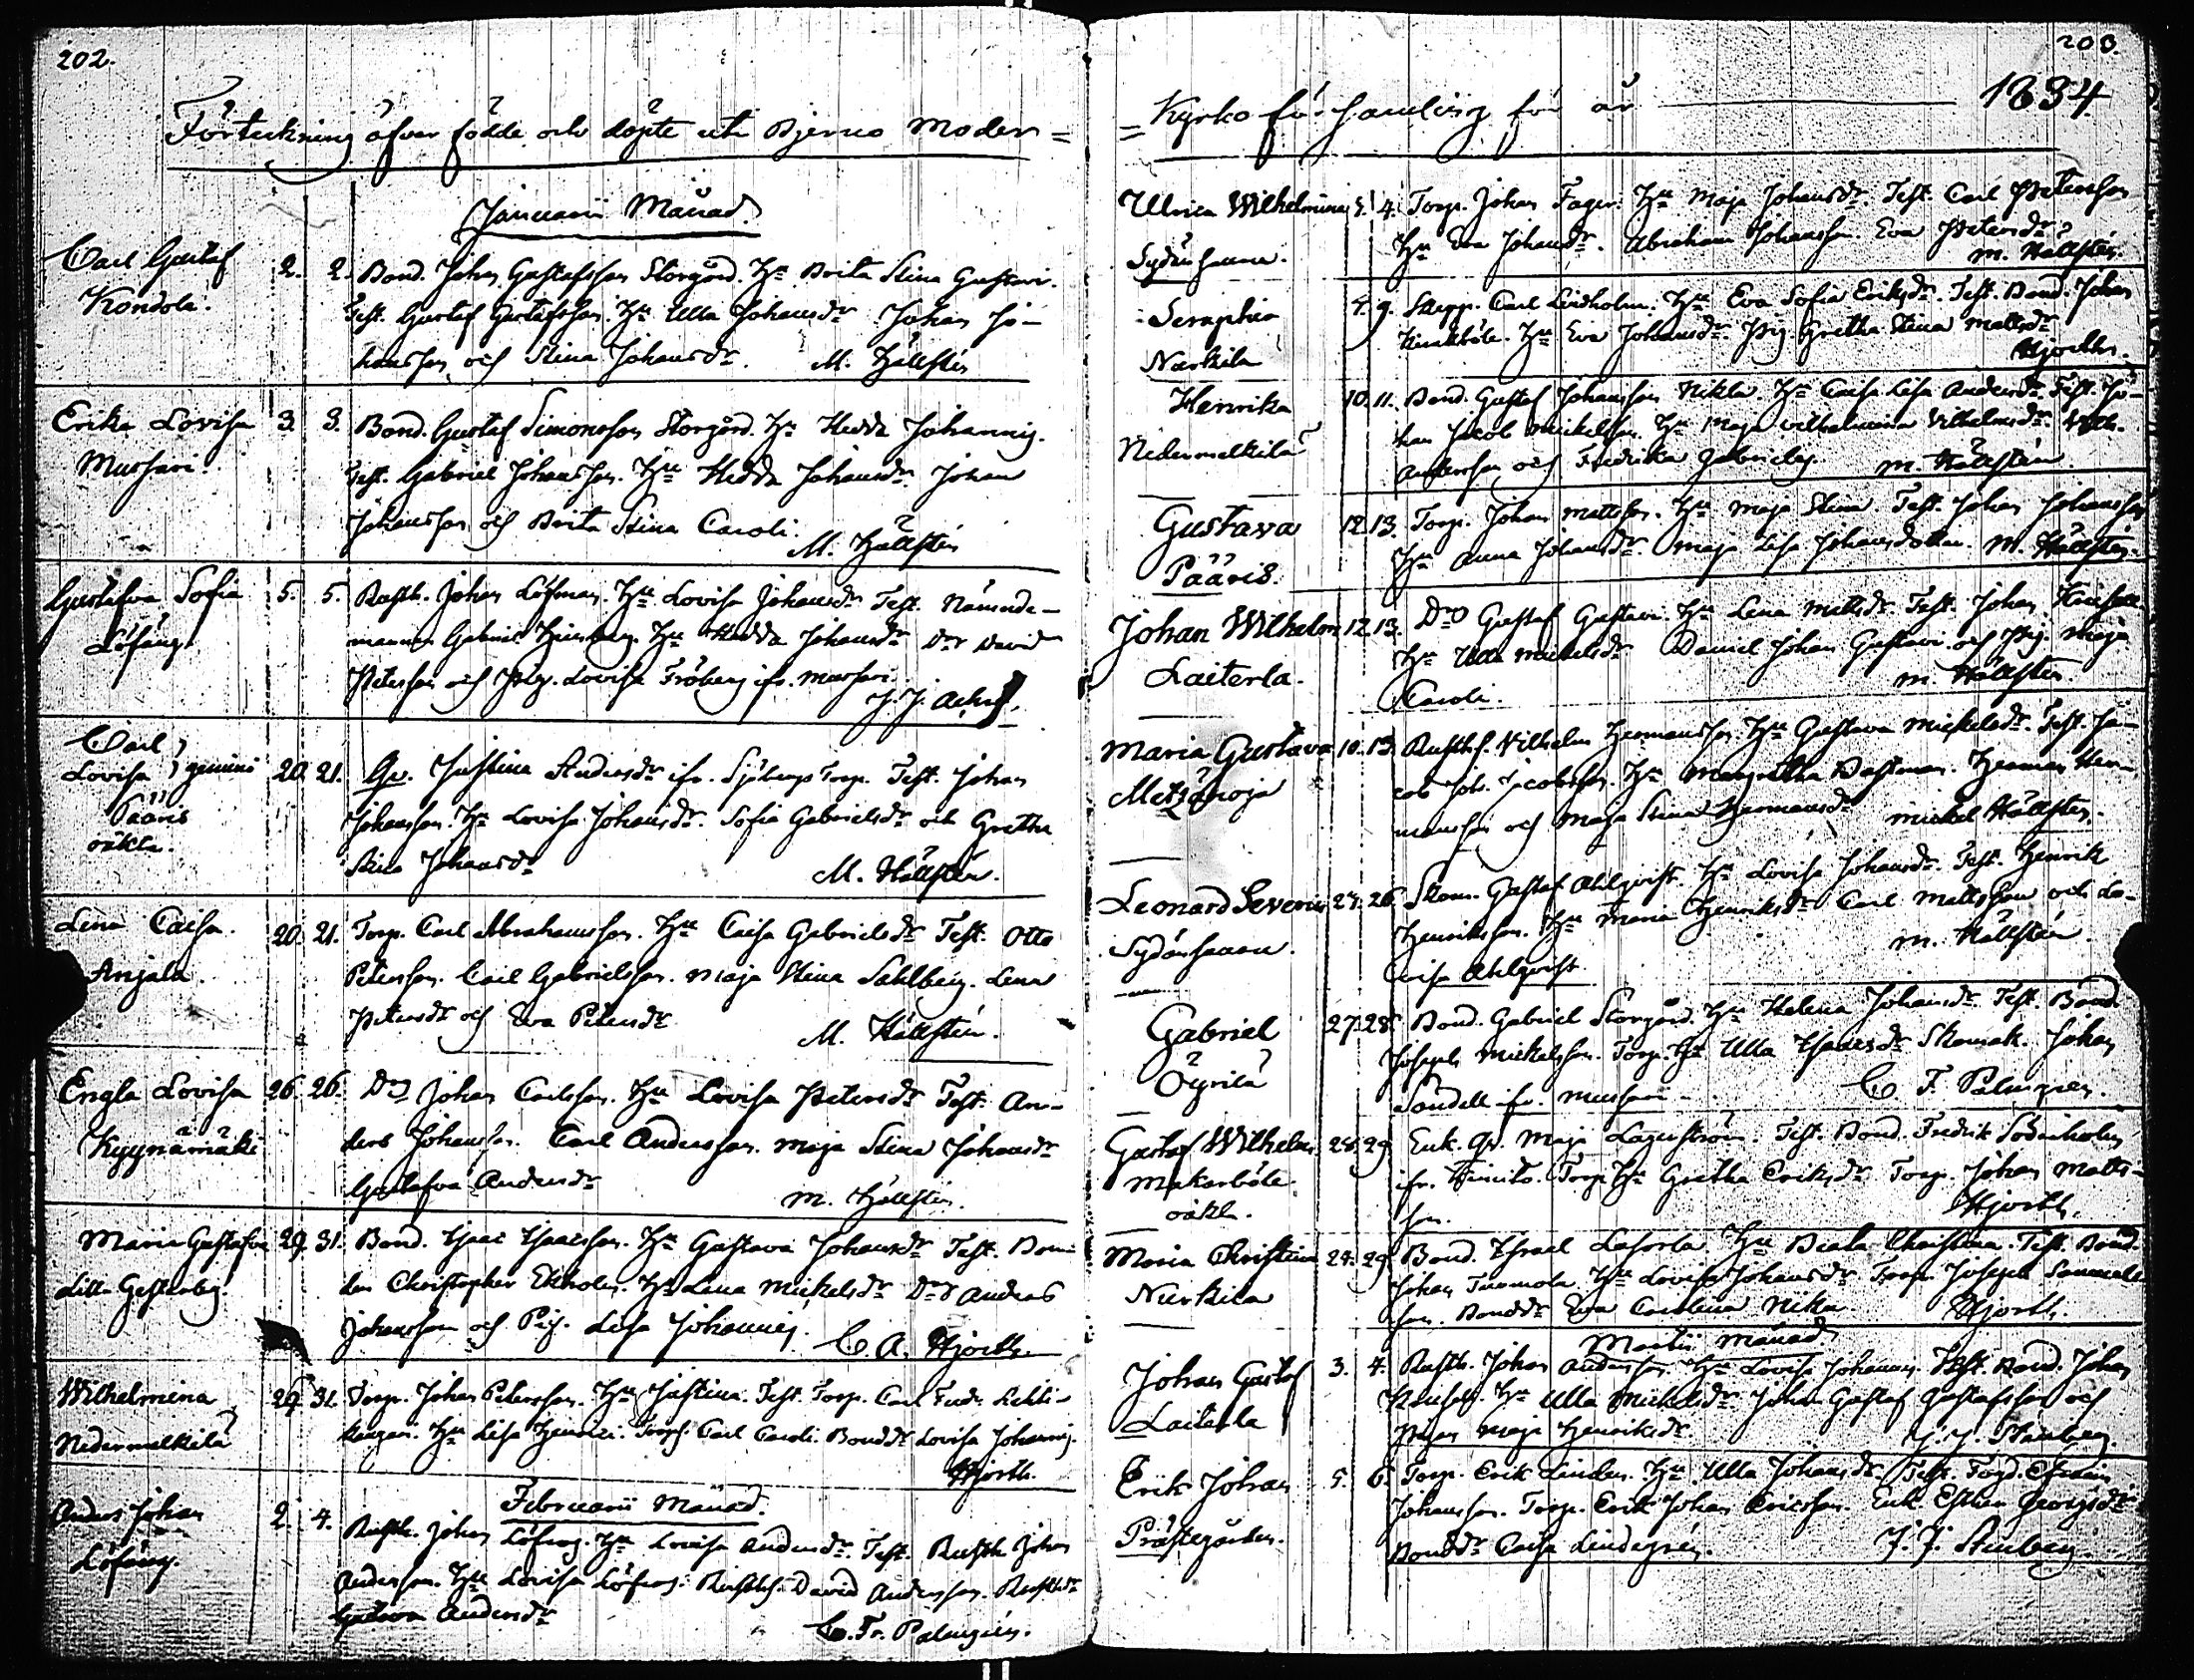 202.
Förteckning öfver födde och döpte uti Bjerno Moder=
Januarii Månad.
Carl Gustaf
Kondola.
2. 2. Bond. Johan Gustafsson Storgård. Hu Brita Stina Gustavi.
Test. Gustaf Gustafsson. Hu Ulla Johansdr Johan Jo-
hansson och Stina Johansdr. M. Hällstén
Erika Lovisa
Mussari
3. 3. Bond. Gustaf Simonsson Storgård. Hu Hedda Johannis.
Test. Gabriel Johansson. Hu Hedda Johansdr Johan
Johansson och Brita Stina Caroli.
M. Hällstén
Gustafva Sofia
Löfäng
5. 5. Rusth. Johan Löfman. Hu Lovisa Johansdr Test. Nämnde-
mannen Gabriel Hu Hedda Johansdr Dr David
Petersson och Pig. Lovisa Fröberg ifr. Mussari.
Carl
Lovisa } gemini
Pääris
oäkta.
20. 21. Qv. Justina Andersdr ifr. Sjöbergs Torp. Test. Johan
Johansson. Hu Lovisa Johansdr. Sofia Gabrielsdr och Gretha
Stina Johansdr
M. Hällstén.
Lena Caisa.
Anjala
20. 21. Torp. Carl Abrahamsson. Hu Caisa Gabrielsdr Test. Otto
Petersson. Carl Gabrielsson. Maja Stina Sahlberg. Lena
Petersdr och Eva Petersdr
M. Hällstén.
Engla Lovisa
Kyynämäki
26. 26. Do Johan Carlsson. Hu Lovisa Petersdr Test. An-
ders Johansson. Carl Andersson. Maja Stina Johansdr
Gustafva Andersdr
M. Hällstén.
Maria Gustafva
Lilla Gesterby
29. 31. Bond. Isaac Isaacsson. Hu Gustava Johansdr Test. Bon-
den Christopher Ekholm. Hu Lena Mickelsdr Dr Anders
Johansson och Pig. Lisa Johannis.
C. A. Hjorth.
Wilhelmina
Nedermelkilä
29. 31. Torp. Johan Petersson. Hu Justina. Test. Torp. Carl Lehti-
kangas. Hu Lisa Henrici. Torps. Carl Caroli. Bonddr Lovisa Johannis.
Hjorth.
Februarii Månad.
Anders Johan
Löfäng.
2. 4. Rusth. Johan Hu Lovisa Andersdr. Test. Rusth Johan
Andersson. Hu Lovisa David Andersson. Rusthdr
Gustava Andersdr
C. Fr. Palmgrén.
203.
=Kyrko församling för år 1834
Ulrica Wilhelmina
Sydänsaura.
3. 4. Torp. Johan Fager. Hu Maja Johansdr. Test. Carl Petersson
Hu Eva Johansdr. Abraham Johansson. Eva Petersdr
M. Hällstén.
Seraphia
Nurkila
4. 9. Skepp. Carl Lindholm. Hu Eva Sofia Eriksdr. Test. Bond. Johan
Hu Eva Johansdr. Pig Gretha Stina Mattsdr
Hjorth.
Henrika
Nedermelkilä
10. 11. Bond. Gustaf Johansson Nikla. Hu Caisa Lisa Andersdr Test. Jo-
han Jacob Mickelsson. Hu Maja Wilhelmina Wilhelmsdr. Wilh.
Andersson och Fredrika Gabrielis. M. Hällstén
Gustava
Pääris.
12. 13. Torp. Johan Mattsson. Hu Maja Stina. Test. Johan Johansson
Hu Anna Johansdr. Maja Lisa Johansdotter. M. Hällstén.
Johan Wilhelm
Laiterla.
12. 13. Do Gustaf Gustavi. Hu Lena Mattsdr. Test. Johan
Hu Ulla Mickelsdr Daniel Johan Gustavi och Pig. Maja
Caroli. M. Hällstén.
Maria Gustava
Metzänoja
10. 13. Rusths. Wilhelm Hermansson. Hu Gustava Mickelsdr. Test. Ja-
cob Joh. Jacobsson. Hu Margretha Bastman. Herman Her-
mansson och Maja Stina Hermansdr Mickel Hällstén.
Leonard Severin
Sydänsaura.
24. 26. Skom. Gustaf Ahlqvist. Hu Lovisa Johansdr. Test. Henrik
Henriksson. Hu Maria Henriksdr Carl Mattsson och Lo-
visa Ahlqvist. M. Hällstén.
Gabriel
Öyrilä
27. 28. Bond. Gabriel Storgård. Hu Helena Johansdr Test. Bond
Joseph Mickelsson. Torp. Hu Ulla Isaacsdr Skomak. Johan
Sandell ifr. Mussari. C. F. Palmgren.
Gustaf Wilhelm
Makarböle.
oäkt.
28. 29. Enk. Qv. Maja Lagerström. Test. Bond. Fredrik Söderholm
ifr. Kimito. Torp. Hu Gretha Eriksdr Torp. Johan Matts-
son. Hjorth.
Maria Christina
Nurkila
24. 29. Bond. Israel Hu Beata Christina. Test. Bond.
Johan Tuomola. Hu Lovisa Johansdr. Torp. Joseph Samuels-
son. Bonddr Eva Carolina Nika. Hjorth.
Martii Månad
Johan Gustaf
Laiterla
3. 4. Rusth. Johan Andersson. Hu Lovisa Johannis. Test. Bond. Johan
Hu Ulla Mickelsdr. Johan Gustaf Gustafsson och
Pigan Maja Henriksdr. J. J. Stenberg.
Erik Johan
Prästegården.
5. 6. Torp. Erik Linden. Hu Ulla Johansdr. Test. Fogd. Efraim
Johansson. Torp. Erik Johan Ericsson. Enk. Esther Georgsdr
Bonddr Caisa Lindegrén. J. J. Stenberg.